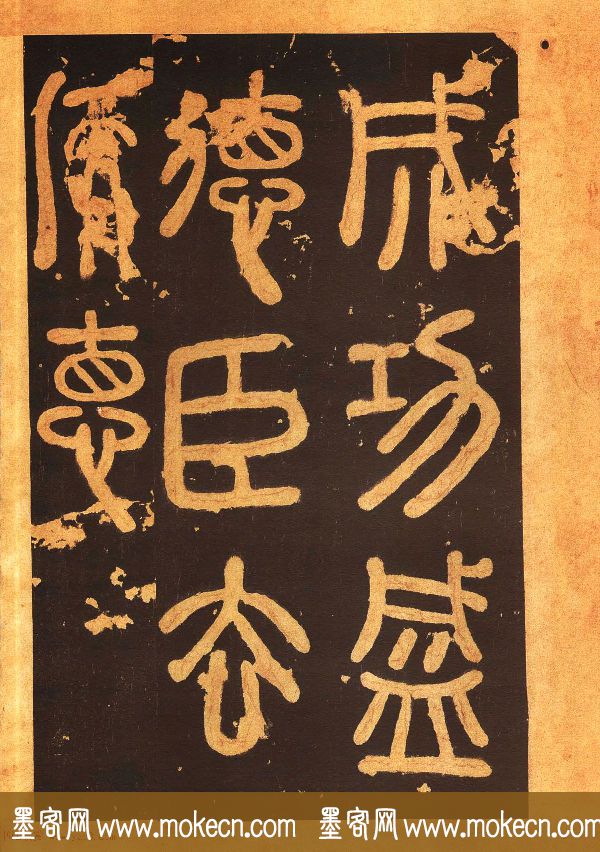 成功盛
德臣去
悳
墨客网 www.mokecn.com 墨客网 www.mokecn.com